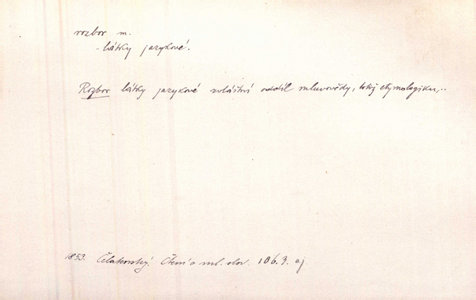 rozbor m.
- látky jazykové.
Rozbor látky jazykové zvláštní oddíl mluvovědy, totiž etymologiku,..
1853. Čelakovský. Čtení o ml. slov. 106.